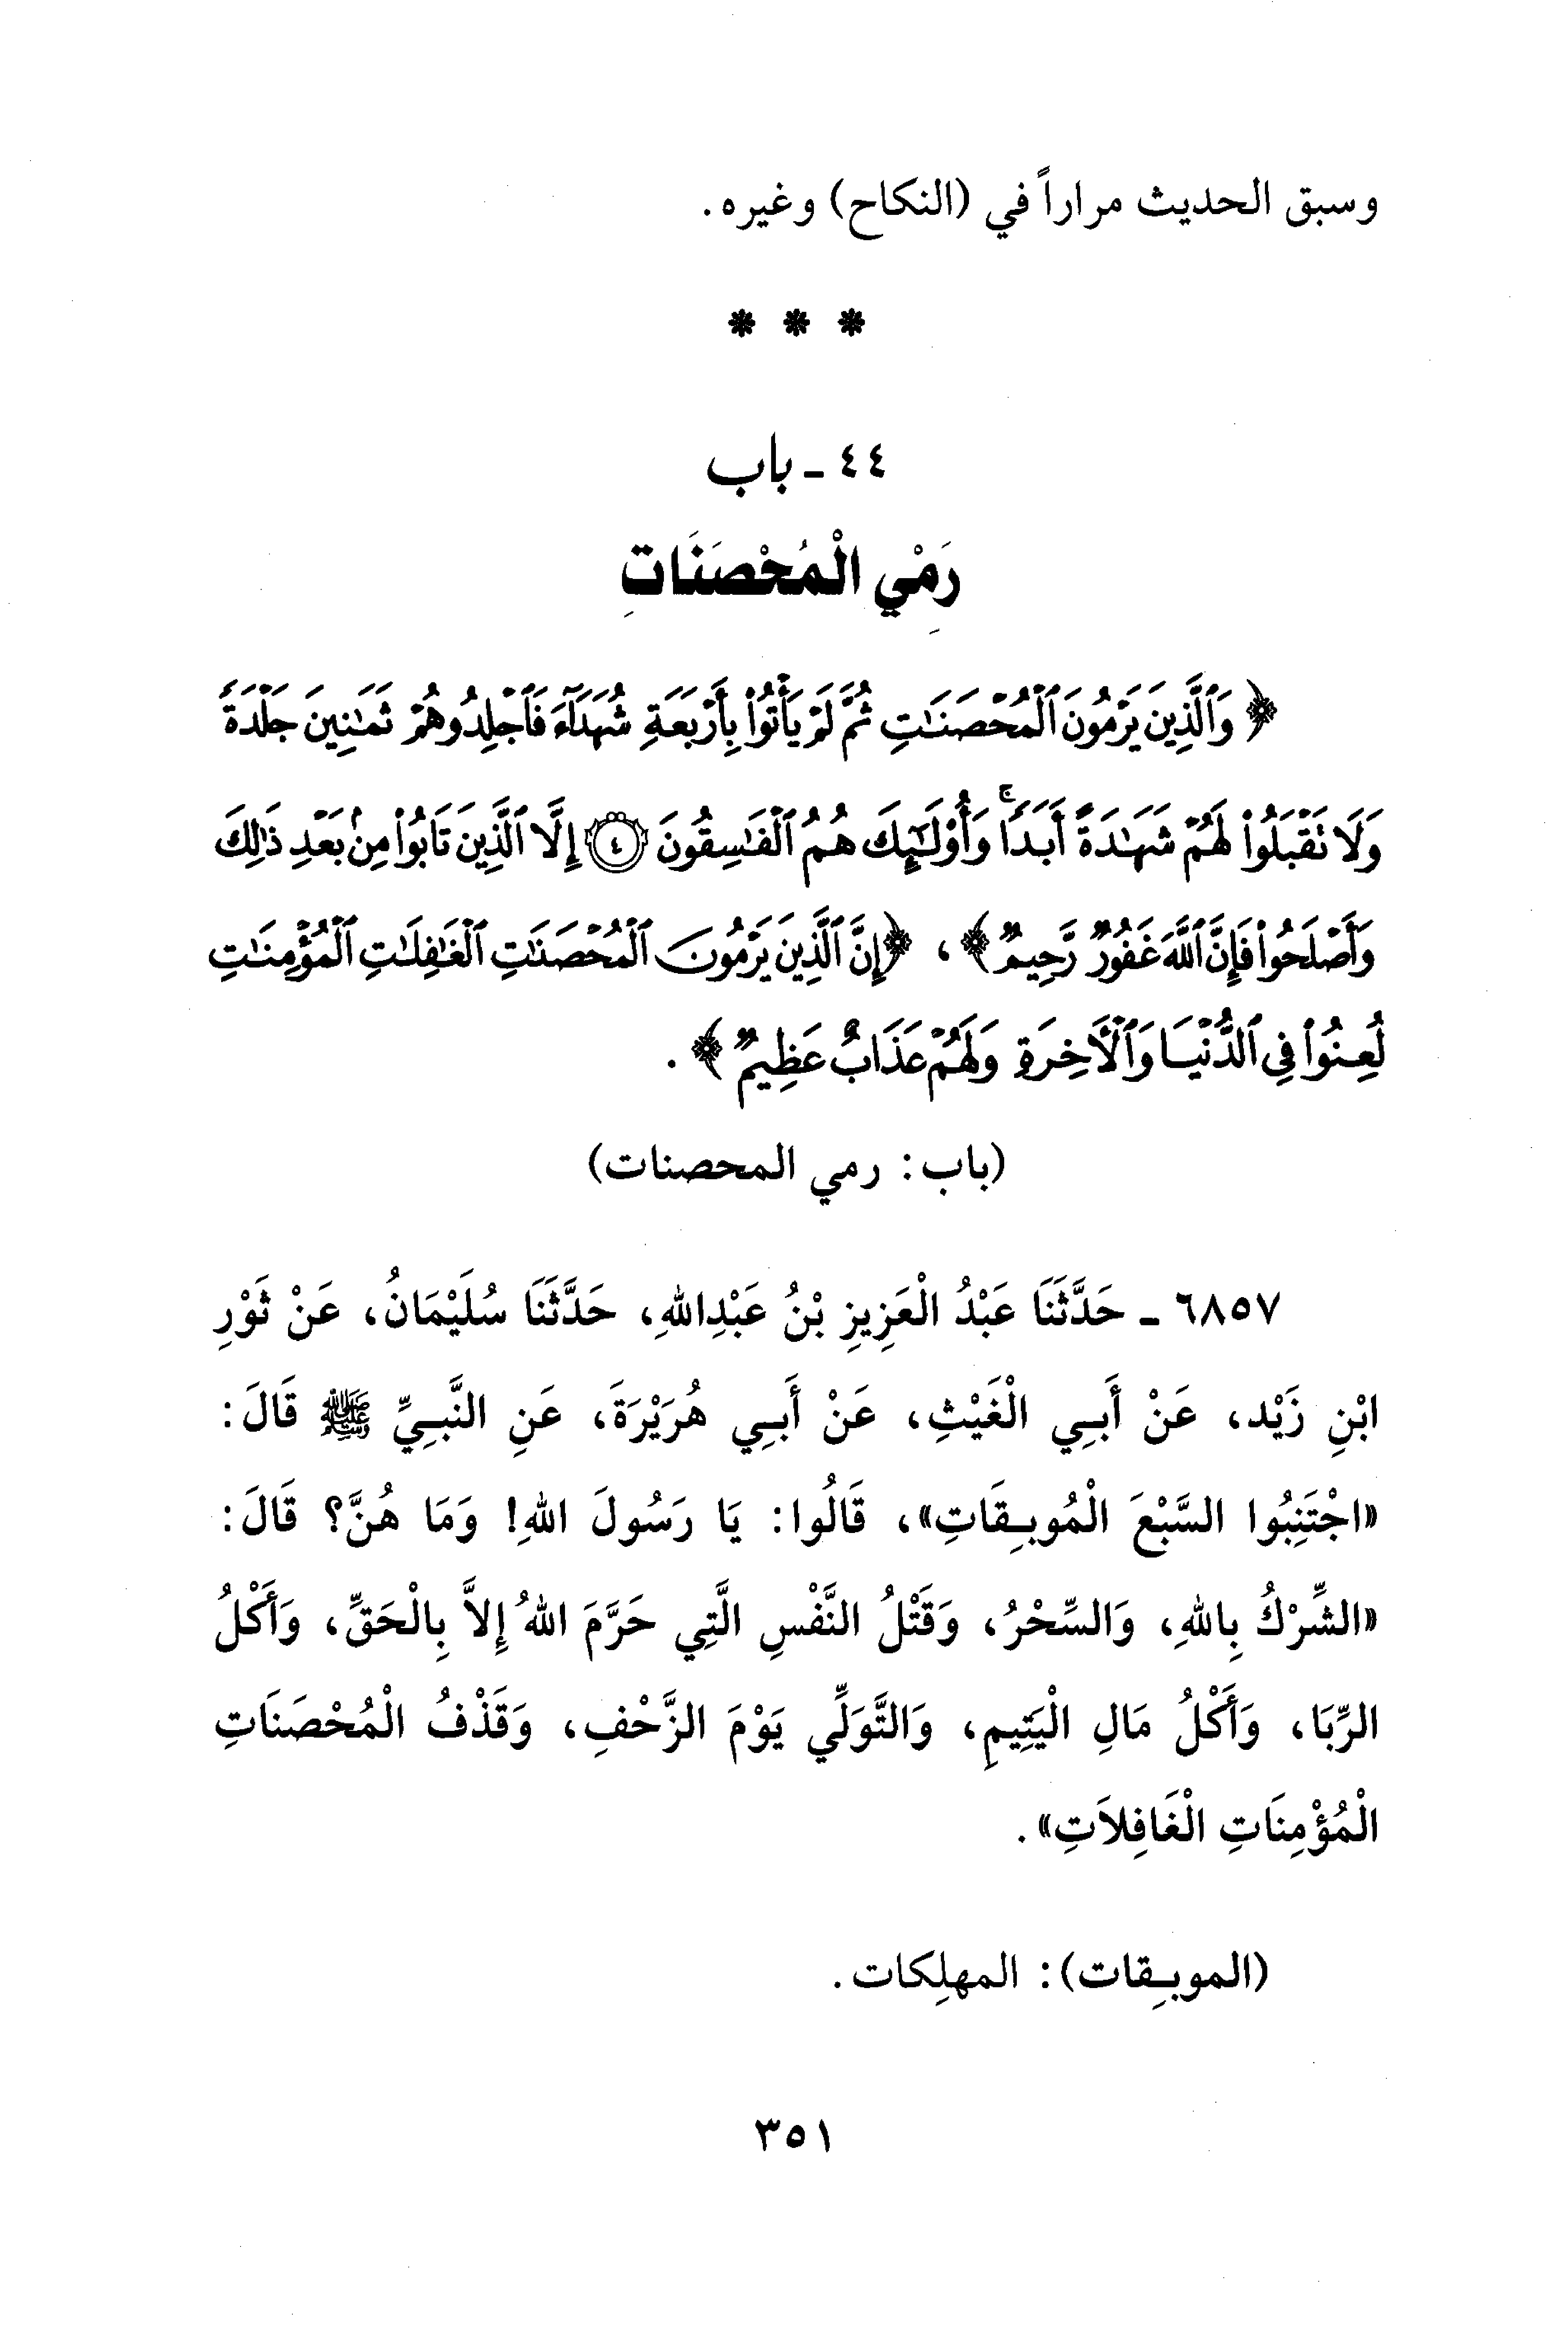 وسبق الحديث مراراً في (النكاح) وغيره.
* * *
٤٤ - باب
رَمْيِ الْمُحْصَنَاتِ
﴿وَٱلَّذِينَ يَرْمُونَ ٱلْمُحْصَنَٰتِ ثُمَّ لَمْ يَأْتُوا۟ بِأَرْبَعَةِ شُهَدَآءَ فَٱجْلِدُوهُمْ ثَمَٰنِينَ جَلْدَةً
وَلَا نَقْبَلُوا۟ لَهُمْ شَهَٰدَةً أَبَدًا ۚ وَأُو۟لَٰٓئِكَ هُمُ ٱلْفَٰسِقُونَ ٤ إِلَّا ٱلَّذِينَ تَابُوا۟ مِنۢ بَعْدِ ذَٰلِكَ
وَأَصْلَحُوا۟ فَإِنَّ ٱللَّهَ غَفُورٌ رَّحِيمٌ﴾، ﴿إِنَّ ٱلَّذِينَ يَرْمُونَ ٱلْمُحْصَنَٰتِ ٱلْغَٰفِلَٰتِ ٱلْمُؤْمِنَٰتِ
لُعِنُوا۟ فِى ٱلدُّنْيَا وَٱلْأَخِرَةِ وَلَهُمْ عَذَابٌ عَظِيمٌ﴾.
(باب: رمي المحصنات)
٦٨٥٧ - حَدَّثَنَا عَبْدُ الْعَزِيزِ بْنُ عَبْدِاللهِ، حَدَّثَنَا سُلَيْمَانُ، عَنْ ثَوْرِ
ابْنِ زَيْد، عَنْ أَبِي الْغَيْثِ، عَنْ أَبِي هُرَيْرَةَ، عَنِ النَّبِيِّ ﷺ قَالَ:
«اجْتَنِبُوا السَّبْعَ الْمُوبِقَاتِ»، قَالُوا: يَا رَسُولَ اللهِ! وَمَا هُنَّ؟ قَالَ:
«الشِّرْكُ بِاللهِ، وَالسِّحْرُ، وَقَتْلُ النَّفْسِ الَّتِي حَرَّمَ اللهُ إِلاَّ بِالْحَقِّ، وَأَكْلُ
الرِّبَا، وَأَكْلُ مَالِ الْيَتِيمِ، وَالتَّوَلِّي يَوْمَ الزَّحْفِ، وَقَذْفُ الْمُحْصَنَاتِ
الْمُؤْمِنَاتِ الْغَافِلاَتِ».
(الموبِقات): المهلِكات.
٣٥١